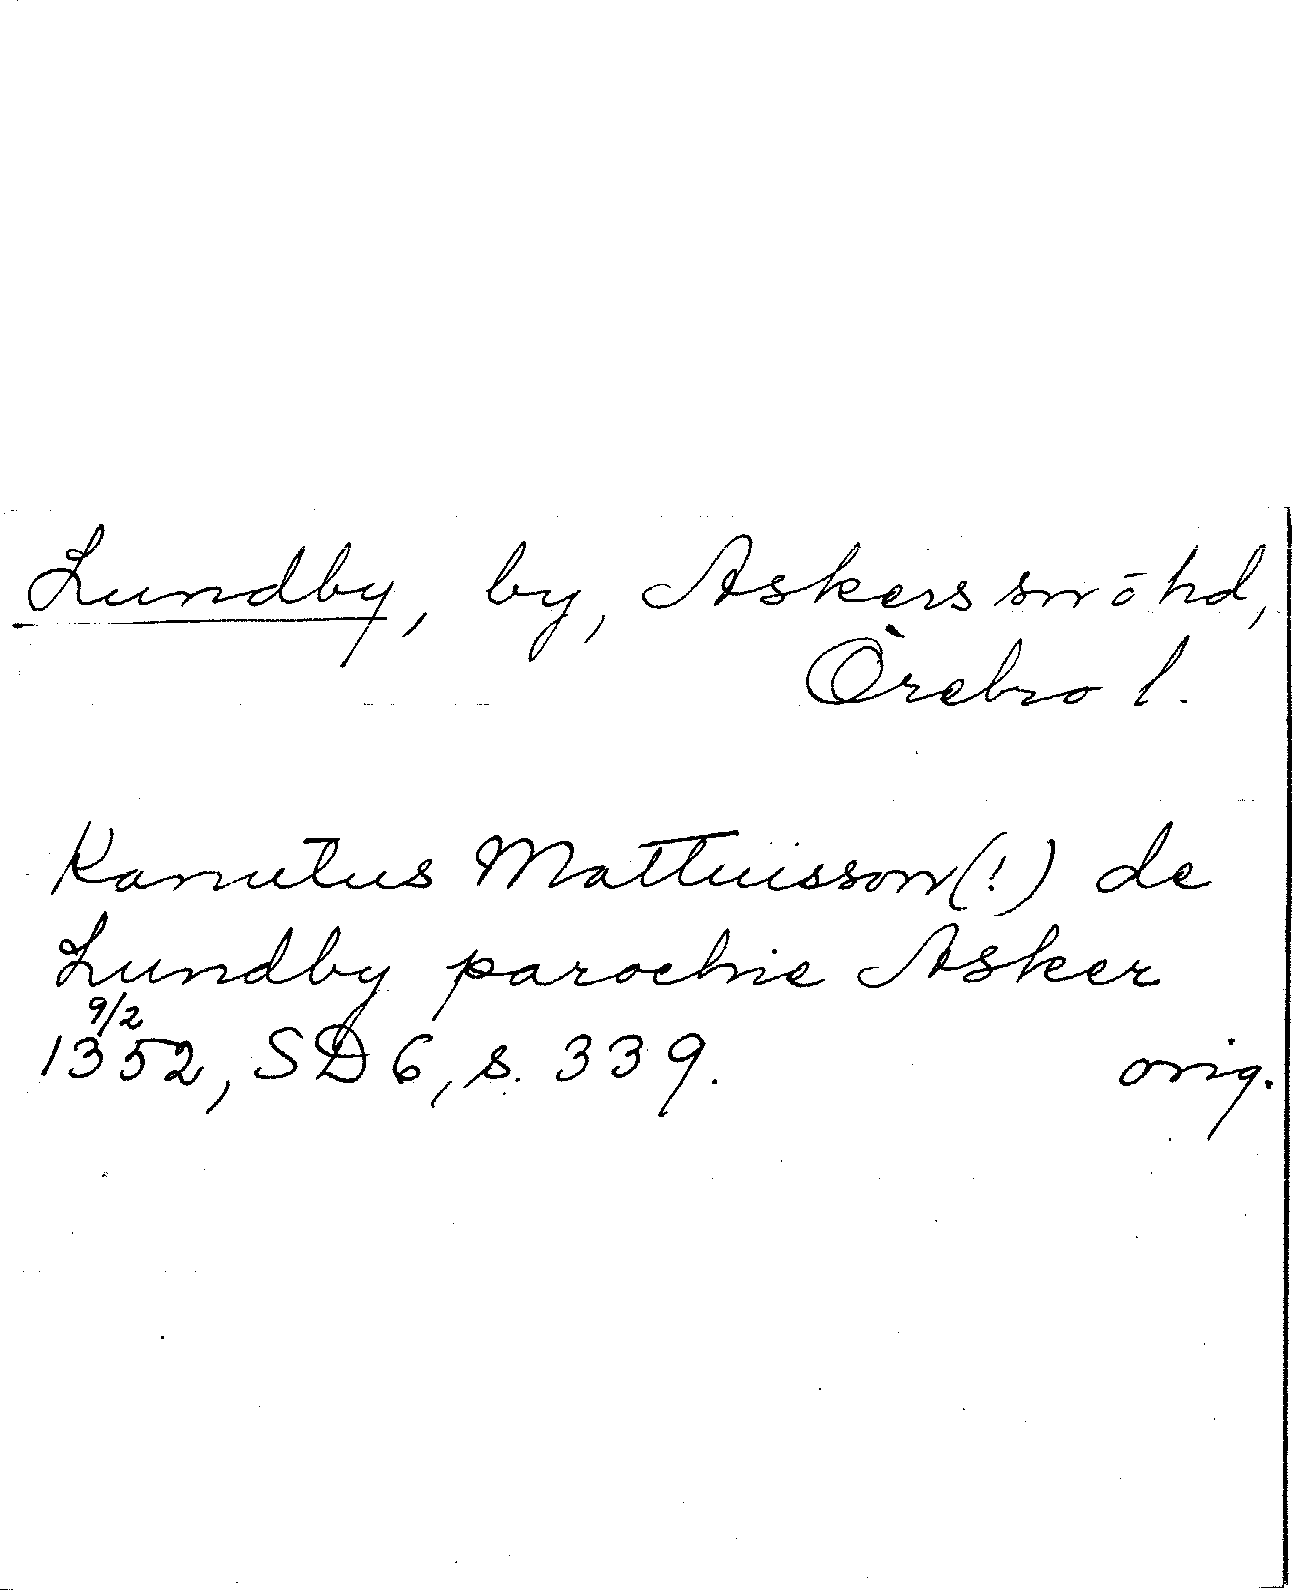 Lundby, by, Askers sn o hd,
Örebro l.
Kanutus Mattuisson (!) de
Lundby parochie Asker
9/2
1352, SD 6, s. 339. orig.